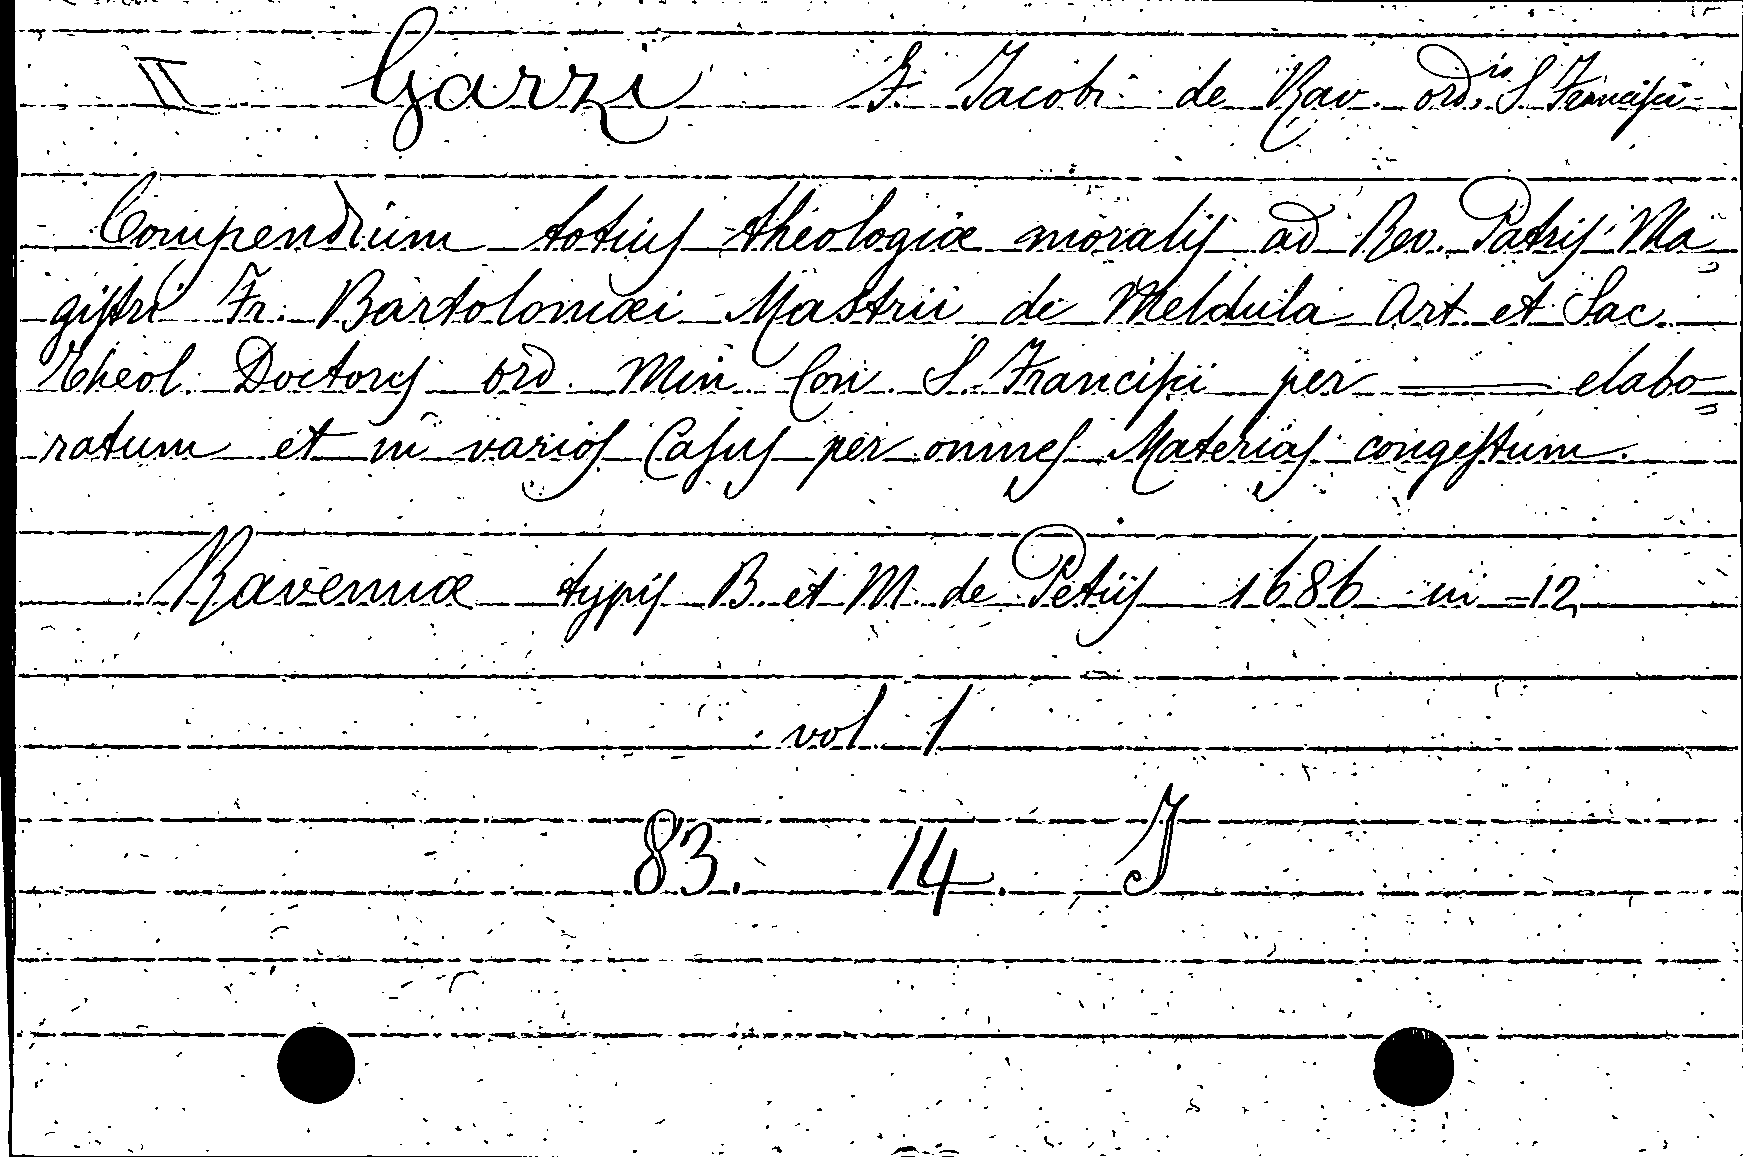 II Garzi F. Jacobi de Rav. ordis S Francisci
Compendium totius theologiæ moralis ad Rev. Patris Ma=
gistri Fr. Bartolomæi Mastrii de Meldula Art. et Sac.
Theol. Doctoris ord. Min. Con. S. Francisci per —— elabo=
ratum et in varios Casus per omnes Materias congestum.
Ravennæ typis B. et M. de Petiis 1686 in -12
vol. 1
83. 14. J